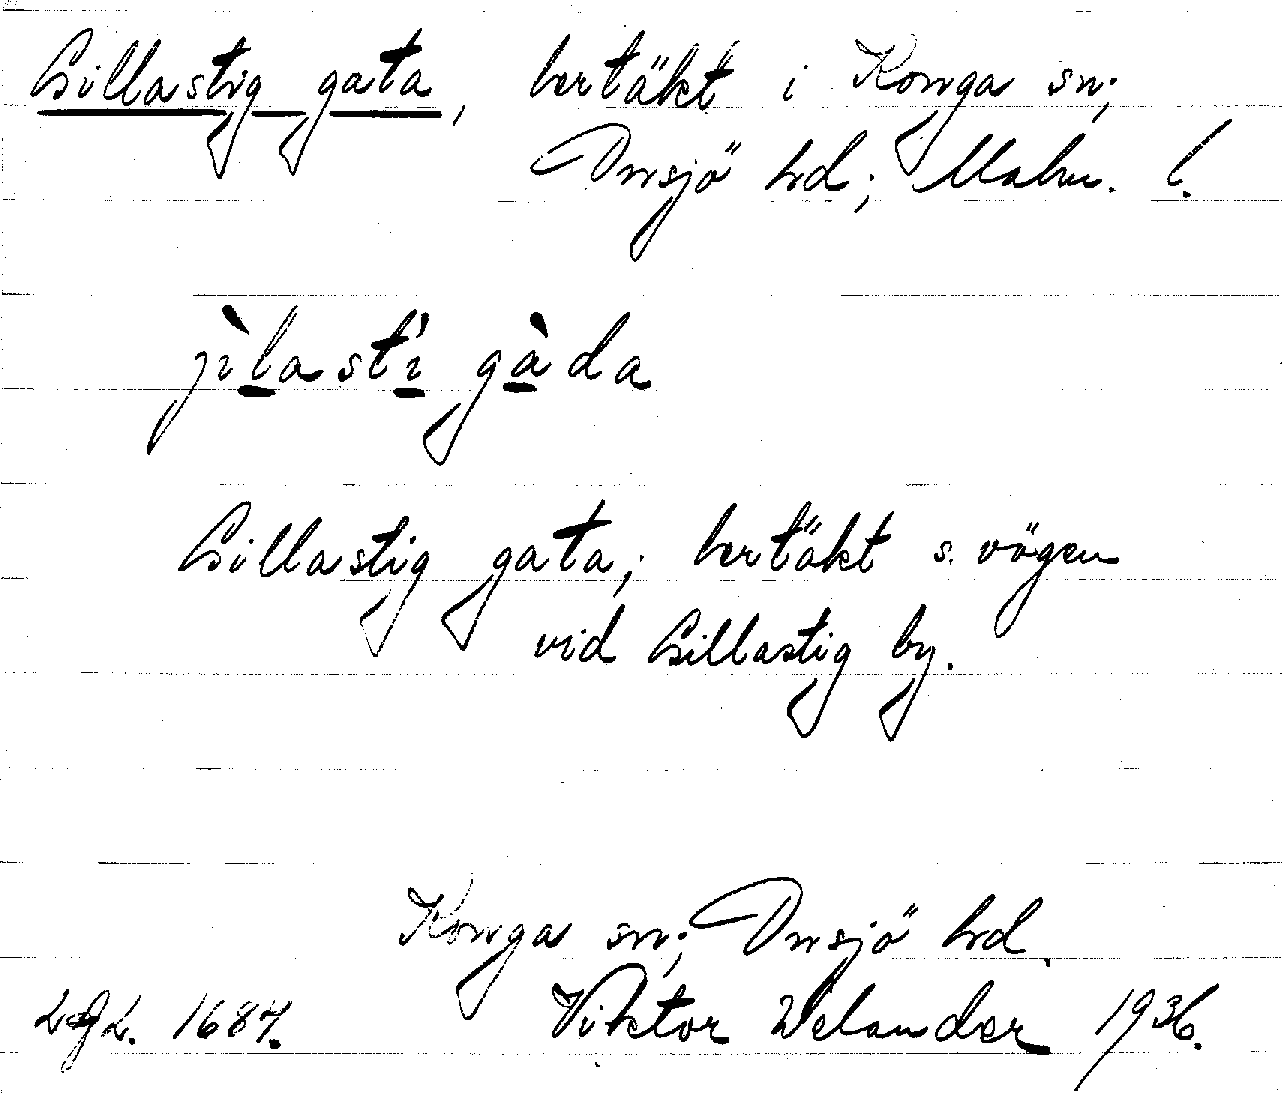 Gillastig gata, bertäkt i Konga sn;
Onsjö hd; Malm. l.
jìlastí gàda
Gillastig gata; bertäkt s. vägen
vid Gillastig by.
Konga sn; Onsjö hd.
1687. Viktor Welander 1936.